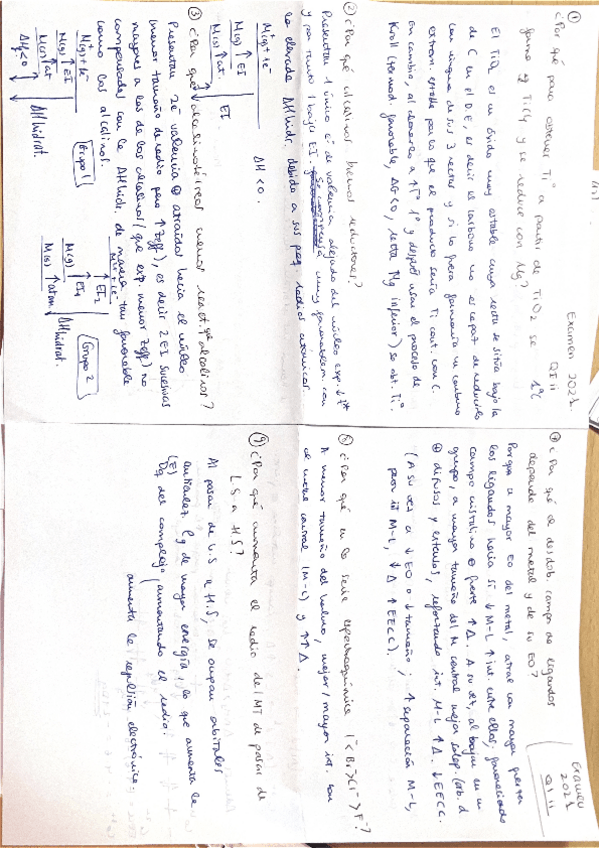 Examen 2021.
QI II
1ºC
① ¿Por qué para obtener Tiº a partir de TiO₂ se
forma el TiCl₄ y se reduce con Mg?
El TiO₂ es un óxido muy estable cuya recta se sitúa bajo la
de C en el D.E, es decir el carbono no es capaz de reducirlo
con ninguna de sus 3 rectas y si lo fuera formaría un carburo
extrem. estable puesto que el producto sería Ti cont. con C.
En cambio, al clorarlo a ↑Tº y después usar el proceso de
Kroll (termod. favorable, ΔG<0, recta Mg inferior) se obt. Tiº
② ¿Por qué alcalinos buenos reductores?
Presentan 1 único e⁻ de valencia alejado del núcleo exp. ↓ Z*
y por tanto 1 baja EI. Se compensa muy favorablem. con
la elevada ΔHhidr. debido a sus peq. radios atómicos.
M⁺(g) + 1e⁻
M(g) ↑ EI
M(s) ↑ at.
EI
ΔH<0.
③ ¿Por qué alcalinotérreos menor react. que alcalinos?
Presentan 2e⁻ valencia ⊕ atraídos hacia el núcleo
menor tamaño de radio pero ↑ Zeff), es decir 2 EI sucesivas
mayores a las de los alcalinos (que exp. menor Zeff) no
compensadas con la ΔHhidr. de manera tan favorable
como los alcalinos.
Grupo 1
M⁺(g) + 1e⁻
M(g) ↑ EI
M(s) ↑ at
ΔHf<0
ΔHhidrat.
Grupo 2
↑ EI₂
M(g) ↑ EI₁
M(s) ↑ atom.
ΔHhidrat.
Examen
2021
QI II
⑦ ¿Por qué el desdob. campo de ligandos
depende del metal y de su EO?
Porque a mayor EO del metal, atrae con mayor fuerza
los ligandos hacia sí ↓ M-L ↑ int. entre ellos, favoreciendo
campo cristalino ⊕ fuerte ↑Δ. A su vez, al bajar en un
grupo, a mayor tamaño del M central mejor solap. (orb. d
⊕ difusos y extensos, reforzando int. M-L ↑Δ. ↓EECC.
(A su vez a ↓ EO o ↓ tamaño ; ↑ separación M-L,
peor int M-L, ↓Δ ↑EECC).
⑧ ¿Por qué en la serie espectroquímica I⁻<Br⁻>Cl⁻>F⁻?
A menor tamaño del haluro, mejor/mayor int. con
el metal central (M-L) y ↑↑Δ.
⑨ ¿Por qué aumenta el radio del MT de pasar de
L.S. a H.S?
Al pasar de L.S a H.S, se ocupan orbitales
antienlaz. eg de mayor energía, lo que aumenta la
(E)
Dq del complejo, aumentando el radio.
aumenta la repulsión electrónica